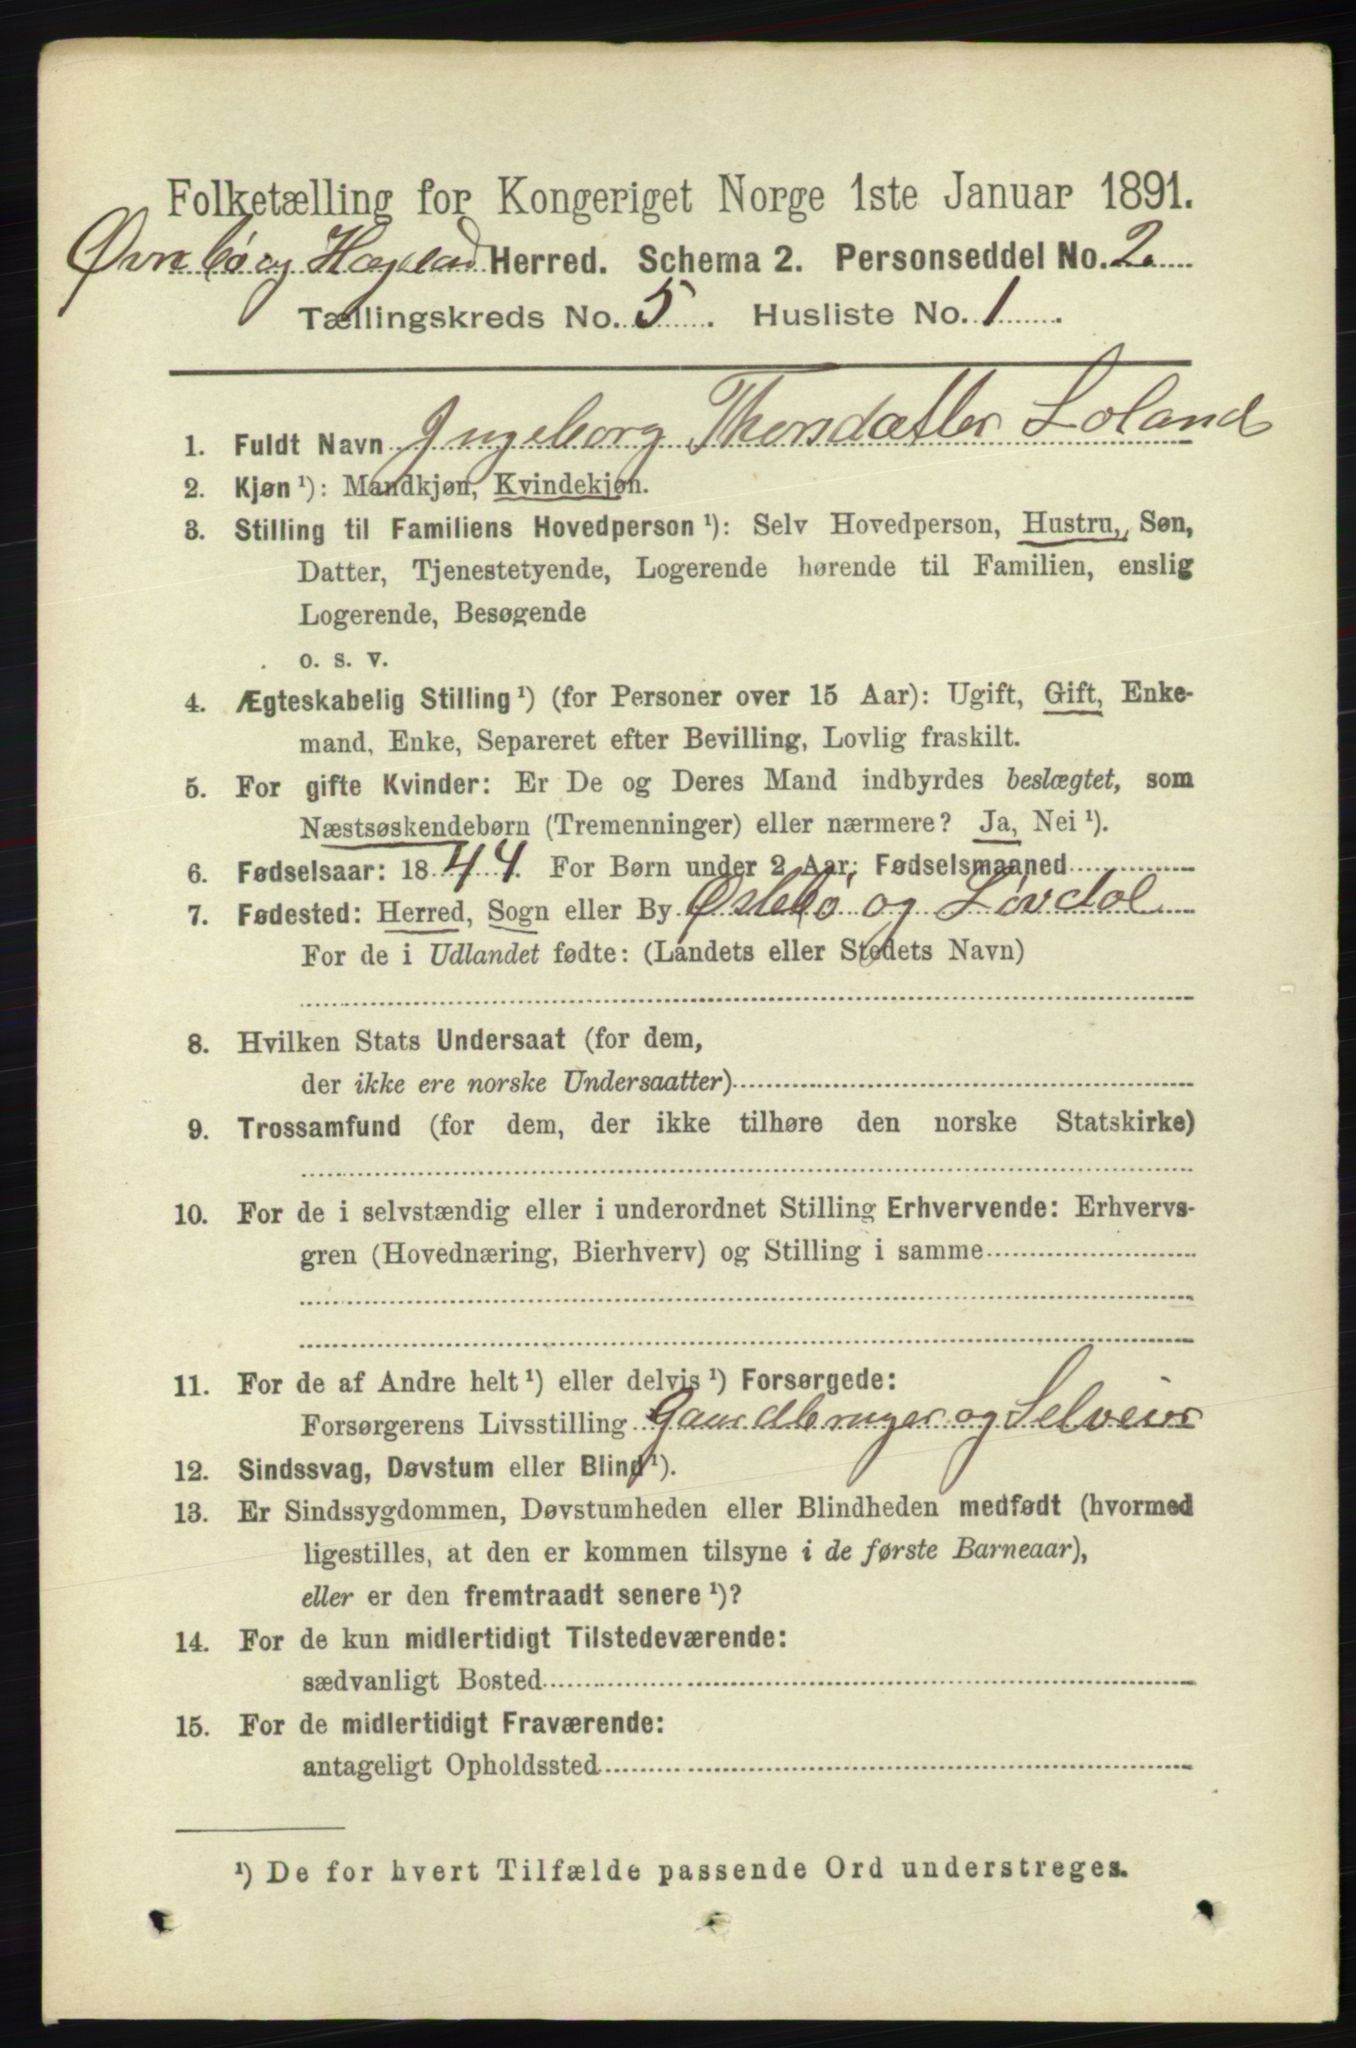 Folketælling for Kongeriget Norge 1ste Januar 1891.
Øvrebø og Hægeland Herred. Schema 2. Personseddel No. 2
Tællingskreds No. 5. Husliste No. 1.
1. Fuldt Navn Ingeborg Thorsdatter Loland
2. Kjøn ¹): Mandkjøn, Kvindekjøn.
3. Stilling til Familiens Hovedperson ¹): Selv Hovedperson, Hustru, Søn,
Datter, Tjenestetyende, Logerende hørende til Familien, enslig
Logerende, Besøgende
o. s. v.
4. Ægteskabelig Stilling ¹) (for Personer over 15 Aar): Ugift, Gift, Enke-
mand, Enke, Separeret efter Bevilling, Lovlig fraskilt.
5. For gifte Kvinder: Er De og Deres Mand indbyrdes beslægtet, som
Næstsøskendebørn (Tremenninger) eller nærmere? Ja, Nei ¹).
6. Fødselsaar: 1844. For Børn under 2 Aar: Fødselsmaaned
7. Fødested: Herred, Sogn eller By Øslebø og Løvdal
For de i Udlandet fødte: (Landets eller Stedets Navn)
8. Hvilken Stats Undersaat (for dem,
der ikke ere norske Undersaatter)
9. Trossamfund (for dem, der ikke tilhøre den norske Statskirke)
10. For de i selvstændig eller i underordnet Stilling Erhvervende: Erhvervs-
gren (Hovednæring, Bierhverv) og Stilling i samme
11. For de af Andre helt ¹) eller delvis ¹) Forsørgede:
Forsørgerens Livsstilling Gaardbruger og Selveier
12. Sindssvag, Døvstum eller Blind ¹).
13. Er Sindssygdommen, Døvstumheden eller Blindheden medfødt (hvormed
ligestilles, at den er kommen tilsyne i de første Barneaar),
eller er den fremtraadt senere ¹)?
14. For de kun midlertidigt Tilstedeværende:
sædvanligt Bosted
15. For de midlertidigt Fraværende:
antageligt Opholdssted
¹) De for hvert Tilfælde passende Ord understreges.